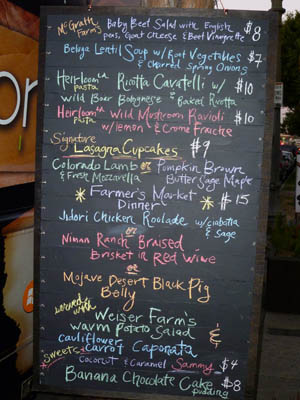 McGrath Farm's Baby Beet Salad with English
peas, goat cheese & Beet Vinaigrette $8
Beluga Lentil Soup w/ Root Vegetables
& charred Spring Onions $7
Heirloom LA pasta Ricotta Cavatelli w/
Wild Boar Bolognese & Baked Ricotta $10
Heirloom LA pasta Wild Mushroom Ravioli
w/ lemon & Creme Fraiche $10
Signature
Lasagna Cupcakes $9
Colorado Lamb or Pumpkin Brown
& Fresh Mozzarella Butter Sage Maple
Farmer's Market
Dinner $15
Jidori Chicken Roulade w/ ciabatta
& sage
or
Niman Ranch Braised
Brisket in Red Wine
or
Mojave Desert Black Pig
Belly
served with
Weiser Farm's
warm Potato Salad &
Cauliflower
& Carrot Caponata
Sweets
Coconut & Caramel Sammy $4
Banana Chocolate Cake
pudding $8